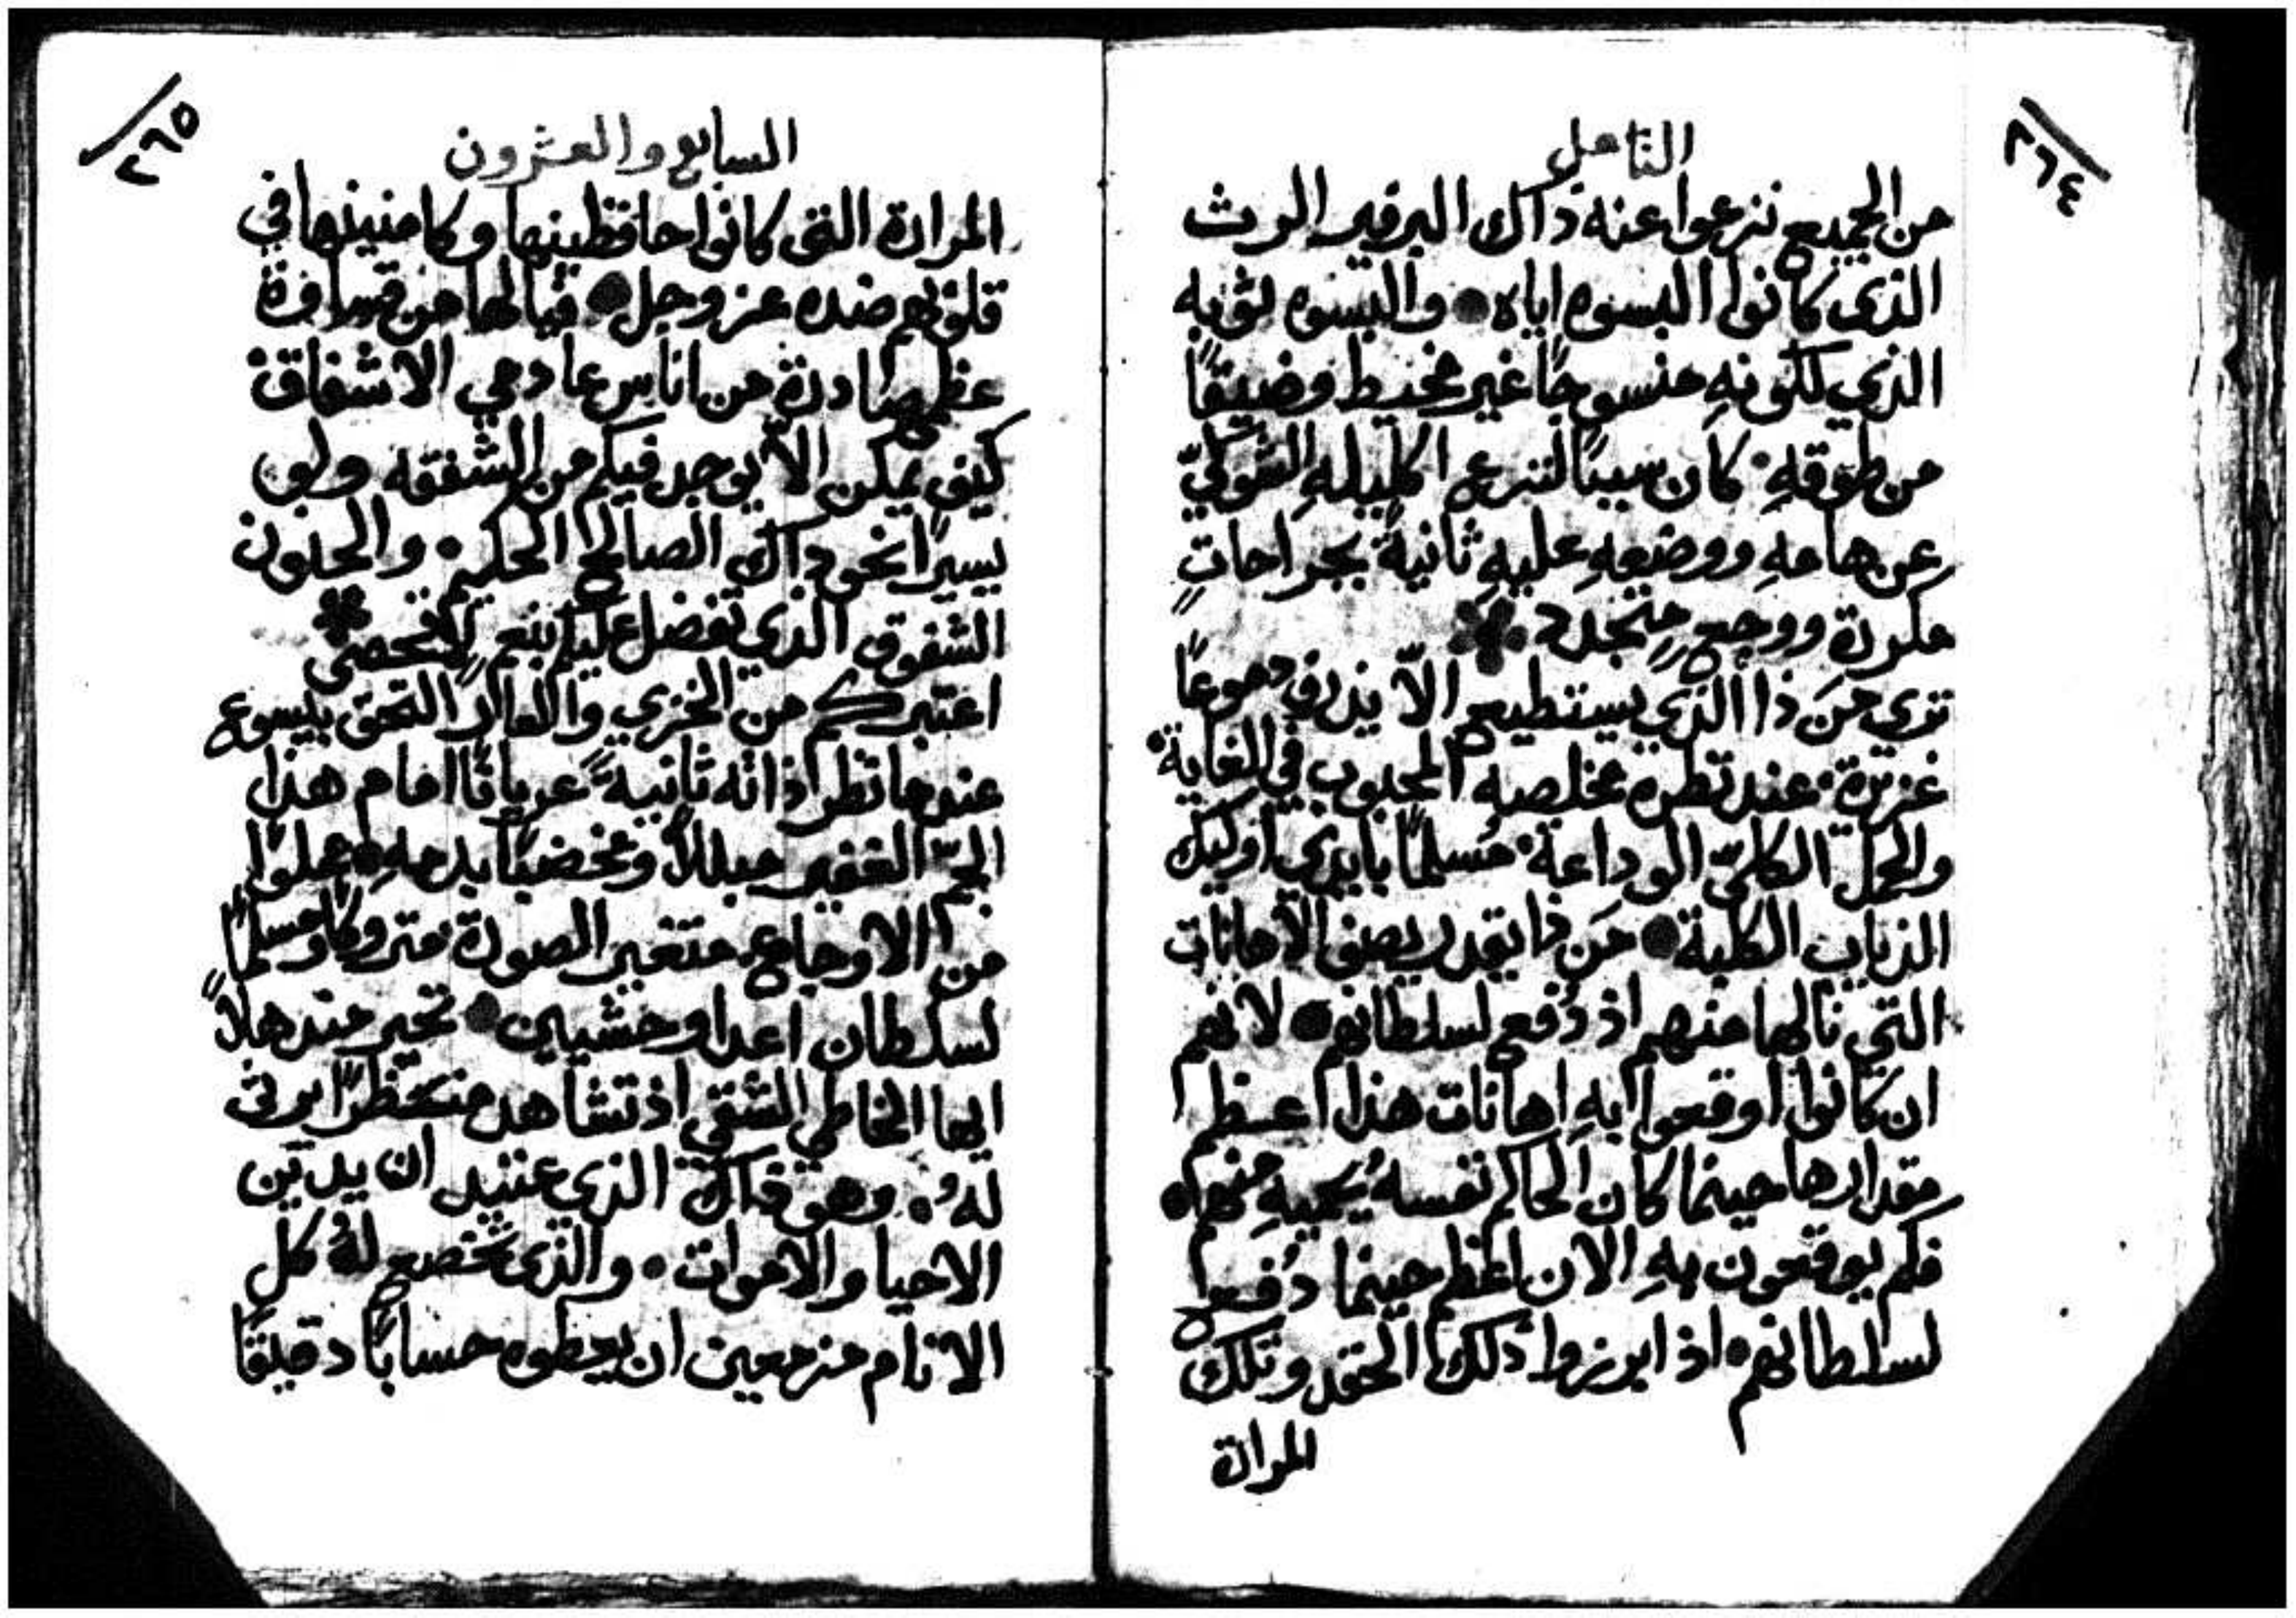 ٢٦٤
التامل
من الجميع نزعوا عنه ذاك البرفير الرث
الذي كانوا البسوه اياه والبسوه ثوبه
الذي لكونهِ منسوجًا غير مخيط وضيقًا
من طوقهِ كان سببًا لنزع اكليلهِ الشوكيّ
عن هامهِ ووضعهِ عليهِ ثانيةً بجراحاتٍ
مكررة ووجعٍ متجدد
تري مَن ذا الذي يستطيع الاّ يذرف دموعًا
غزيرة عند نظره مخلصه المحبوب في الغاية
والحمل الكليّ الوداعة مُسلمًا بايدي اوليك
الذياب الكلبة مَن ذا يقدر يصف الاهانات
التي نالها منهم اذ دُفع لسلطانهم لانهم
ان كانوا اوقعوا بهِ اهانات هذا اعظم
مقدارها حينما كان الحاكم نفسهُ يحميهِ منهم
فكم يوقعون بهِ الان اعظم حينما دُفع
لسلطانهم اذ ابرزوا ذلك الحقد وتلك
المرارة
٢٦٥
السابع والعشرون
المرارة التي كانوا حافظينها وكامنينها في
قلوبهم ضده عز وجل فيا لها من قساوة
عظيمة صادرة من اناس عادمي الاشفاق
كيف يمكن الاّ يوجد فيكم من الشفقه ولو
يسيرًا نحو ذاك الصالح الحكيم والحنون
الشفوق الذي تفضل عليكم بنعم لا تحصى
اعتبركم من الخزي والعار التحق بيسوع
عندما نظر ذاته ثانيةً عريانًا امام هذا
الجمّ الغفير مبللاً ومخضبًا بدمهِ مملوًا
من الاوجاع متغير الصورة متروكًا ومسلمًا
لسلطان اعدا وحشيين تحير مندهلاً
ايها الخاطي الشقي اذ تشاهد منظرًا يرثى
لهُ وهو ذاك الذي عتيد ان يدين
الاحيا والاموات والذي تخضع لهُ كل
الانام مزمعين ان يعطوه حسابًا دقيقًا